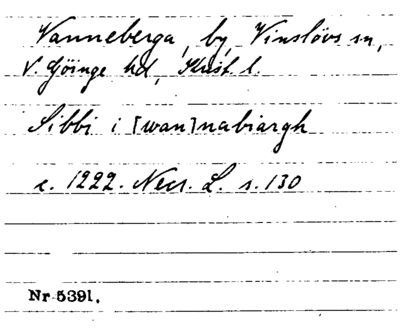 Vanneberga, by, Vinslövs sn,
V. Göinge hd, Krist. l.
Sibbi i [wan]nabiargh
c. 1222. Necr. L. s. 130
Nr 5391.